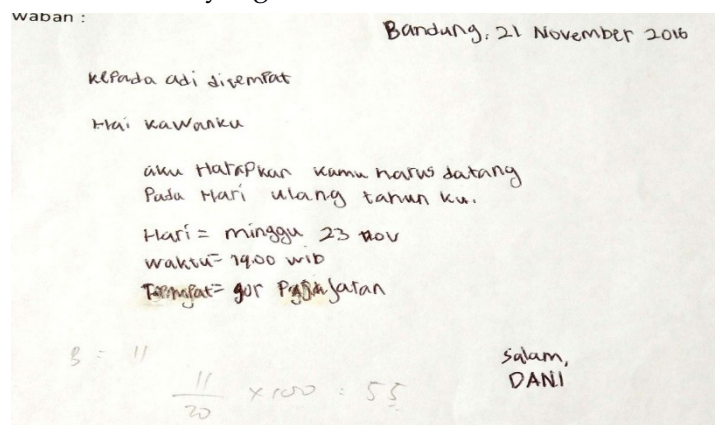 waban :
Bandung, 21 November 2016
kepada adi ditempat
Hai kawanku
aku Harapkan kamu harus datang
Pada Hari ulang tahun ku.
Hari = minggu 23 nov
waktu = 19.00 wib
Tempat = gor Pajajaran
Salam,
DANI
B = 11
11
20
x 100 = 55